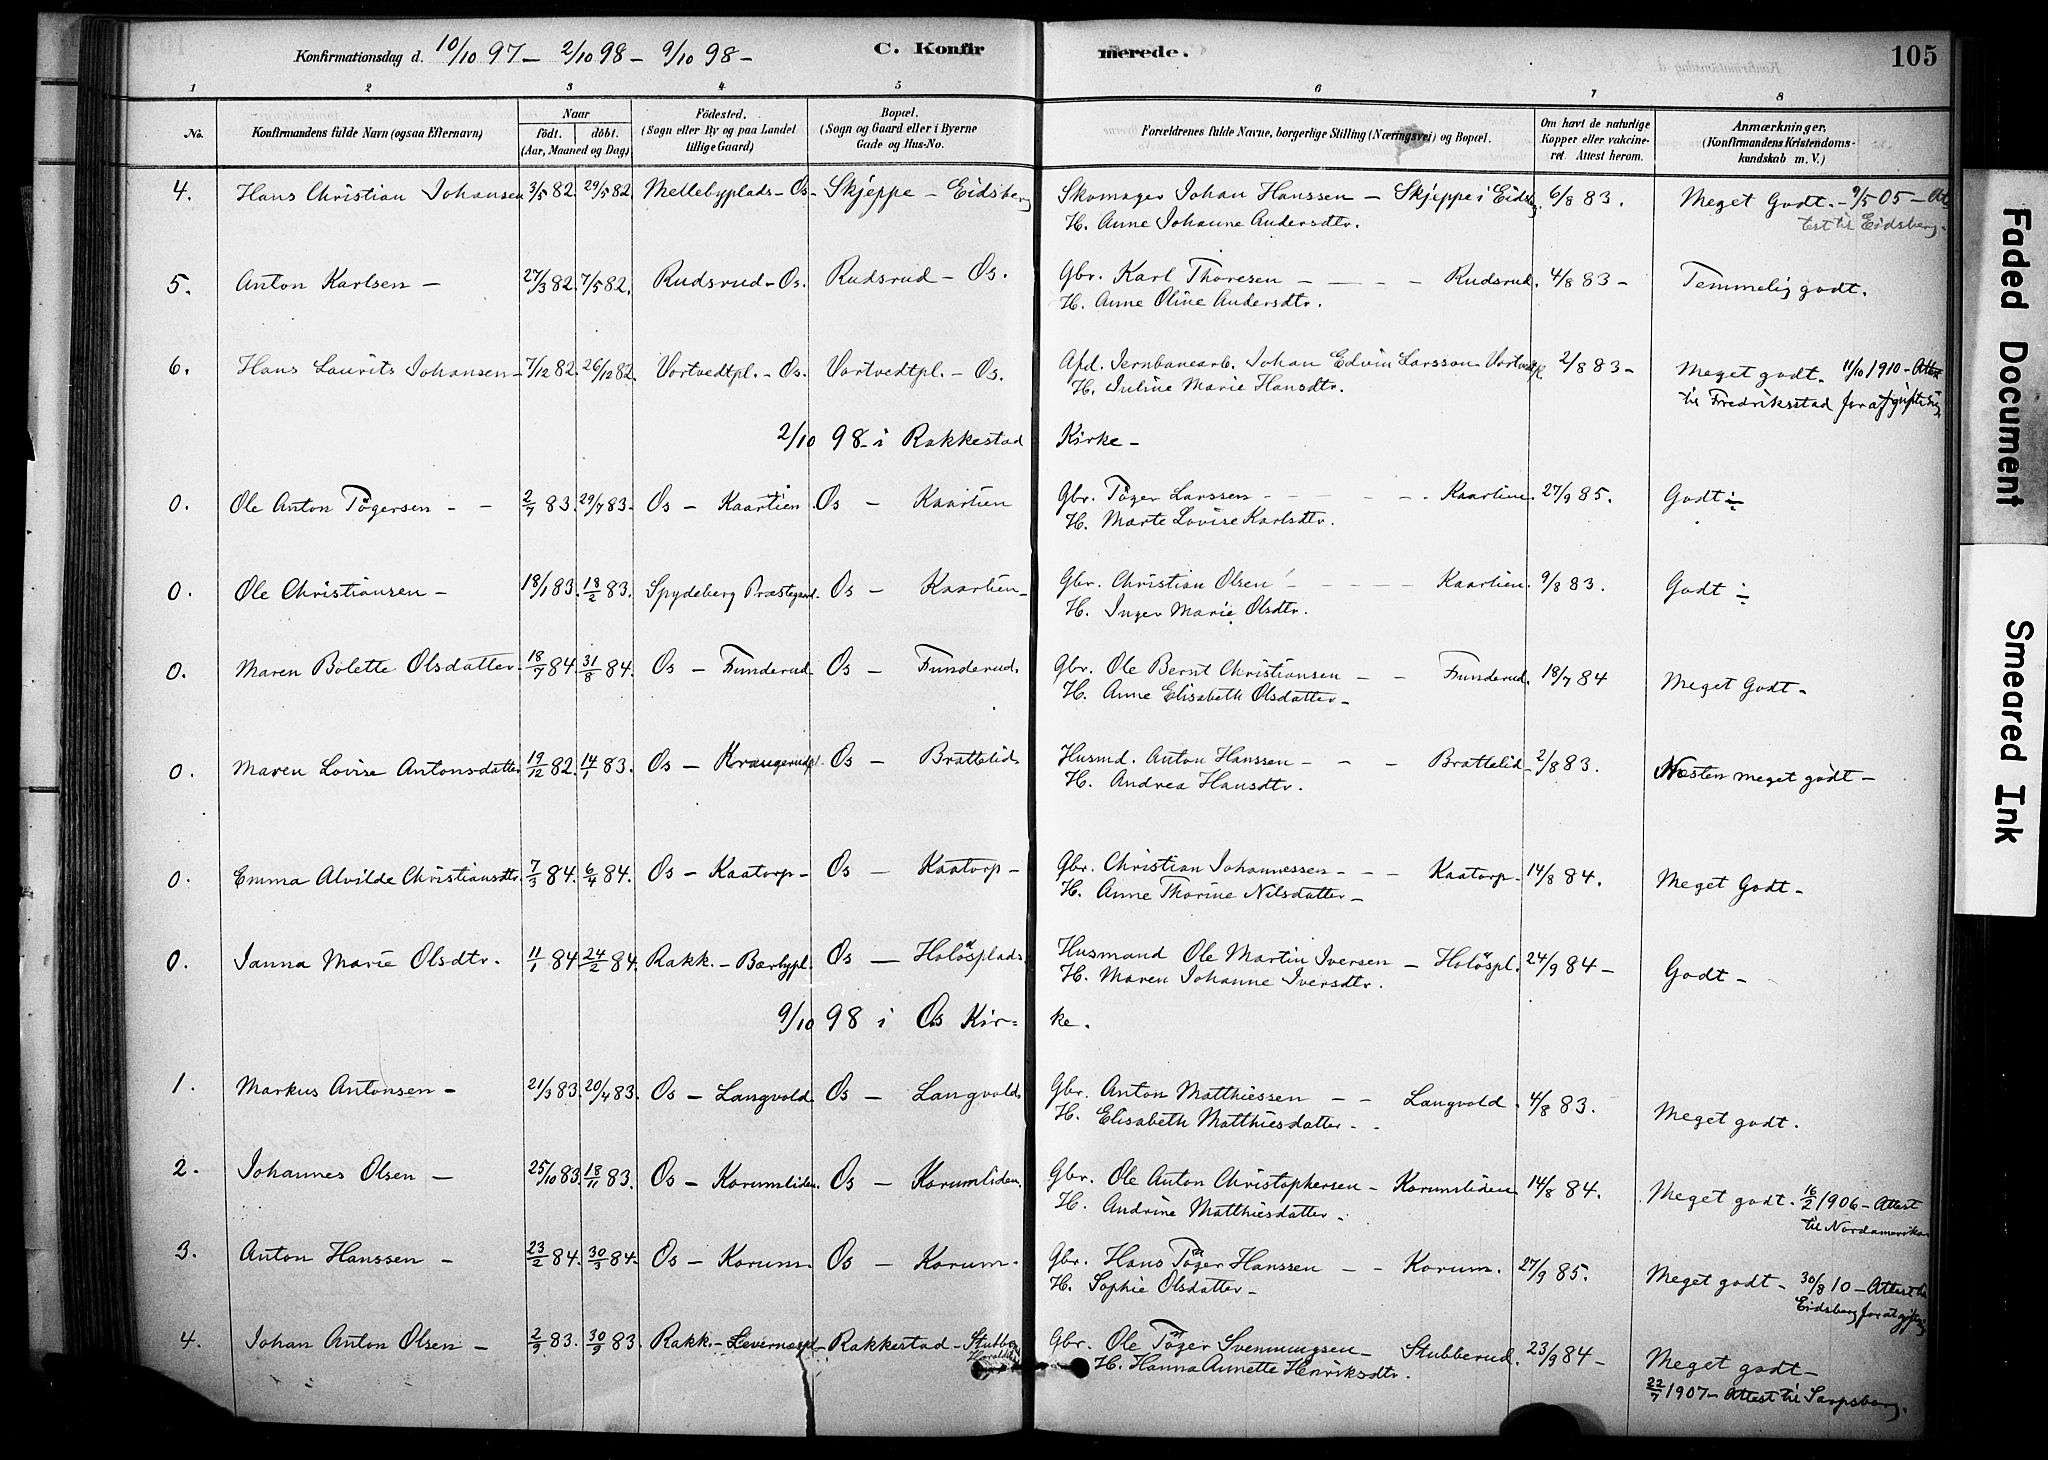 Konfirmationsdag d. 10/10 97 – 2/10 98 – 9/10 98 – C. Konfirmerede. 105
1 2 3 4 5 6 7 8
No. Konfirmandens fulde Navn (ogsaa Efternavn) Naar født. døbt. (Aar, Maaned og Dag) Fødested. (Sogn eller By og paa Landet tillige Gaard) Bopæl. (Sogn og Gaard eller i Byerne Gade og Hus-No. Forældrenes fulde Navne, borgerlige Stilling (Næringsvei) og Bopæl. Om havt de naturlige Kopper eller vakcineret. Attest herom. Anmærkninger. (Konfirmandens Kristendomskundskab m. V.)
4. Hans Christian Johansen 3/5 82 29/5 82 Mellebyplads – Os – Skjeppe – Eidsberg Skomager Johan Hanssen – Skjeppe i Eidsbg. 6/8 83. Meget Godt. – 9/5 05 – At-
H. Anne Johanne Andersdtr. test til Eidsberg.
5. Anton Karlsen – 27/3 82. 7/5 82. Rudsrud – Os. Rudsrud – Os. Gbr. Karl Thoresen – – – – Rudsrud. 4/8 83 – Temmelig godt.
H. Anne Oline Andersdtr.
6. Hans Laurits Johansen – 7/12 82. 26/12 82. Vortvedtpl. – Os. Vortvedtpl. – Os. Afd. Jernbanearb. Johan Edvin Larsson – Vortvedtpl. 2/8 83 – Meget godt. 11/10 1910 – Attest
H. Juline Marie Hansdtr. til Fredriksstad
2/10 98 – i Rakkestad Kirke –
0. Ole Anton Tøgersen – – 2/7 83. 29/7 83. Os – Kaartien. Os – Kaartien Gbr. Tøger Larssen – – – – – Kaartien. 27/9 85. Godt ÷
H. Marte Lovise Karlsdtr.
0. Ole Christiansen – 18/1 83. 18/2 83. Spydeberg Præstegaard. Os – Kaartien – Gbr. Christian Olsen – – – – Kaartien. 9/8 83. Godt ÷
H. Inger Marie Olsdtr.
0. Maren Bolette Olsdatter. 18/7 84 31/8 84. Os – Funderud. Os – Funderud. Gbr. Ole Bernt Christiansen – – Funderud. 18/7 84 Meget Godt –
H. Anne Elisabeth Olsdatter –
0. Maren Lovise Antonsdatter 19/12 82. 14/1 83. Os – Krangerudpl. Os – Brattelid. Husmd. Anton Hanssen – – – Brattelid – 2/8 83. Næsten meget godt –
H. Andrea Hansdtr.
0. Emma Alvilde Christiansdtr. 7/3 84. 6/4 84. Os – Kaatorp – Os – Kaatorp – Gbr. Christian Johannessen – – – Kaatorp – 14/8 84. Meget Godt –
H. Anne Thorine Nilsdatter –
0. Janna Marie Olsdtr. 11/1 84. 24/2 84. Rakk. – Bærbypl. Os – Holøsplads. Husmand Ole Martin Iversen – Holøspl. 24/9 84 – Godt –
H. Maren Johanne Iversdtr.
9/10 98 i Os Kir= ke.
1. Markus Antonsen – 21/3 83. 20/4 83. Os – Langvold. Os – Langvold. Gbr. Anton Matthiessen – – Langvold. 4/8 83. Meget godt.
H. Elisabeth Matthiesdatter –
2. Johannes Olsen – 25/10 83. 18/11 83. Os – Korumliden. Os – Korumliden. Gbr. Ole Anton Christophersen – Korumsliden 14/8 84. Meget godt. 16/2 1906 – Attest
H. Andrine Matthiesdatter – til Nordamerika
3. Anton Hanssen – 23/2 84. 30/3 84 – Os – Korum – Os – Korum – Gbr. Hans Tøger Hanssen – – Korum. 27/9 85. Meget godt – 30/8 10 – Attest til
H. Sophie Olsdatter – Eidsberg
4. Johan Anton Olsen – 2/9 83. 30/9 83. Rakk. – Rakkestad – Gbr. Ole Tøger Svenningsen – Stubberud. 23/9 84 – Meget godt –
H. Hanna Annette Henriksdtr. 22/7 1907 – Attest til Sarpsborg.
Faded Document
Smeared Ink